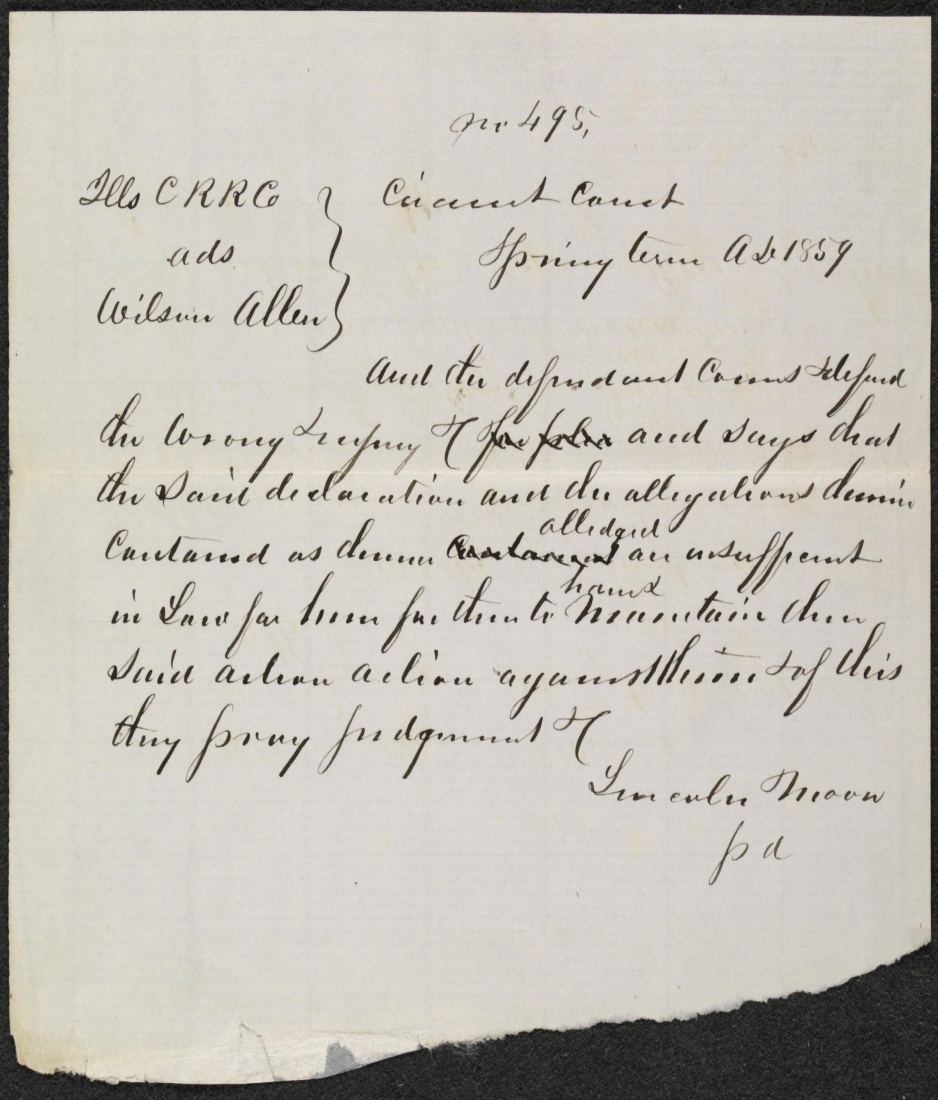 no 495,
Ills C R R Co
ads
Wilson Allen
Circuit Court
Spring term A D 1859
And the defendant comes & defend
the wrong & injury &c for plea and says that
the said declaration and the allegations therein
contained as therein contained alledged are insufficient
in Law for him for them to have & maintain their
said action action against them & of this
they pray judgement &c
Lincoln Moon
p d